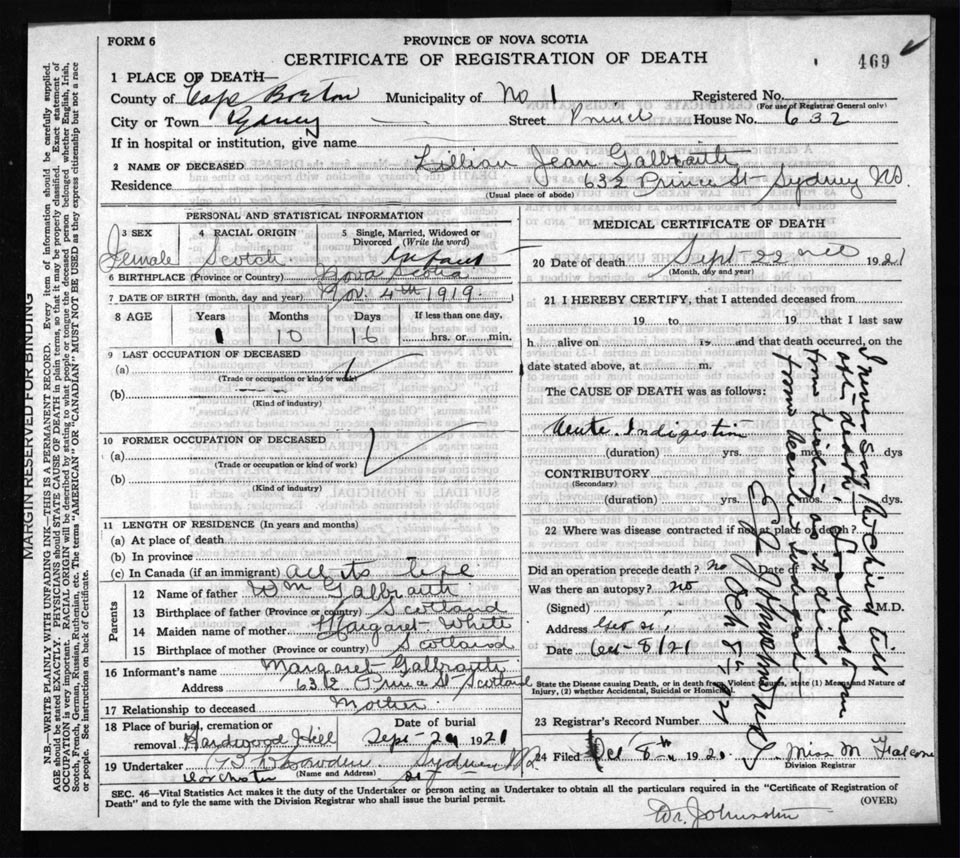 FORM 6
PROVINCE OF NOVA SCOTIA
CERTIFICATE OF REGISTRATION OF DEATH
469
1 PLACE OF DEATH—
County of Cape Breton Municipality of No 1 Registered No.
(For use of Registrar General only)
City or Town Sydney Street Prince House No. 632
If in hospital or institution, give name
2 NAME OF DECEASED Lillian Jean Galbraith
Residence 632 Prince St Sydney NS.
(Usual place of abode)
PERSONAL AND STATISTICAL INFORMATION
3 SEX 4 RACIAL ORIGIN 5 Single, Married, Widowed or Divorced (Write the word)
Female Scotch Infant
6 BIRTHPLACE (Province or Country) Nova Scotia
7 DATE OF BIRTH (month, day and year) Nov. 4th 1919
8 AGE Years Months Days If less than one day,
1 10 16 hrs. or min.
9 LAST OCCUPATION OF DECEASED
(a)
(Trade or occupation or kind or work)
(b)
(Kind of industry)
10 FORMER OCCUPATION OF DECEASED
(a)
(Trade or occupation or kind of work)
(b)
(Kind of industry)
11 LENGTH OF RESIDENCE (In years and months)
(a) At place of death
(b) In province
(c) In Canada (if an immigrant) all its life
Parents
12 Name of father Wm Galbraith
13 Birthplace of father (Province or country) Scotland
14 Maiden name of mother Margaret White
15 Birthplace of mother (Province or Country) Scotland
16 Informant's name Margaret Galbraith
Address 632 Prince St Scotland
17 Relationship to deceased Mother
18 Place of burial, cremation or removal Hardwood Hill
Date of burial Sept 24 1921
19 Undertaker Sydney
(Name and Address)
Dorchester St
MEDICAL CERTIFICATE OF DEATH
20 Date of death Sept 22 1921
(Month, day and year)
21 I HEREBY CERTIFY, that I attended deceased from
19 to 19 that I last saw
h alive on 19 and that death occurred, on the
date stated above, at m.
The CAUSE OF DEATH was as follows:
Acute Indigestion
(duration) yrs. mos. dys
CONTRIBUTORY
(Secondary)
(duration) yrs. mos. dys.
22 Where was disease contracted if not at place of death?
Did an operation precede death? no Date of
Was there an autopsy? no
(Signed) M.D.
Address
Date Oct 8/21
State the Disease causing Death, or in death from Violent Causes, state (1) Means and Nature of
Injury, (2) whether Accidental, Suicidal or Homicidal
23 Registrar's Record Number
24 Filed Oct 8th 192 Miss M Falconer
Division Registrar
I never saw the child till
after death,
Johnstone MD
Oct 8th 1921
SEC. 46—Vital Statistics Act makes it the duty of the Undertaker or person acting as Undertaker to obtain all the particulars required in the "Certificate of Registration of
Death" and to fyle the same with the Division Registrar who shall issue the burial permit.
(OVER)
Dr. Johnstone
MARGIN RESERVED FOR BINDING
N.B.—WRITE PLAINLY WITH UNFADING INK—THIS IS A PERMANENT RECORD. Every item of information should be carefully supplied.
AGE should be stated EXACTLY. PHYSICIANS should STATE CAUSE OF DEATH in plain terms, so that it may be properly classified. Exact statement of
OCCUPATION is very important. RACIAL ORIGIN will be described by stating to what people or tongue the deceased person belonged whether English, Irish,
Scotch, French, German, Russian, Ruthenian, etc. The terms "AMERICAN" OR "CANADIAN" MUST NOT BE USED as they express citizenship but not a race
or people. See instructions on back of Certificate.